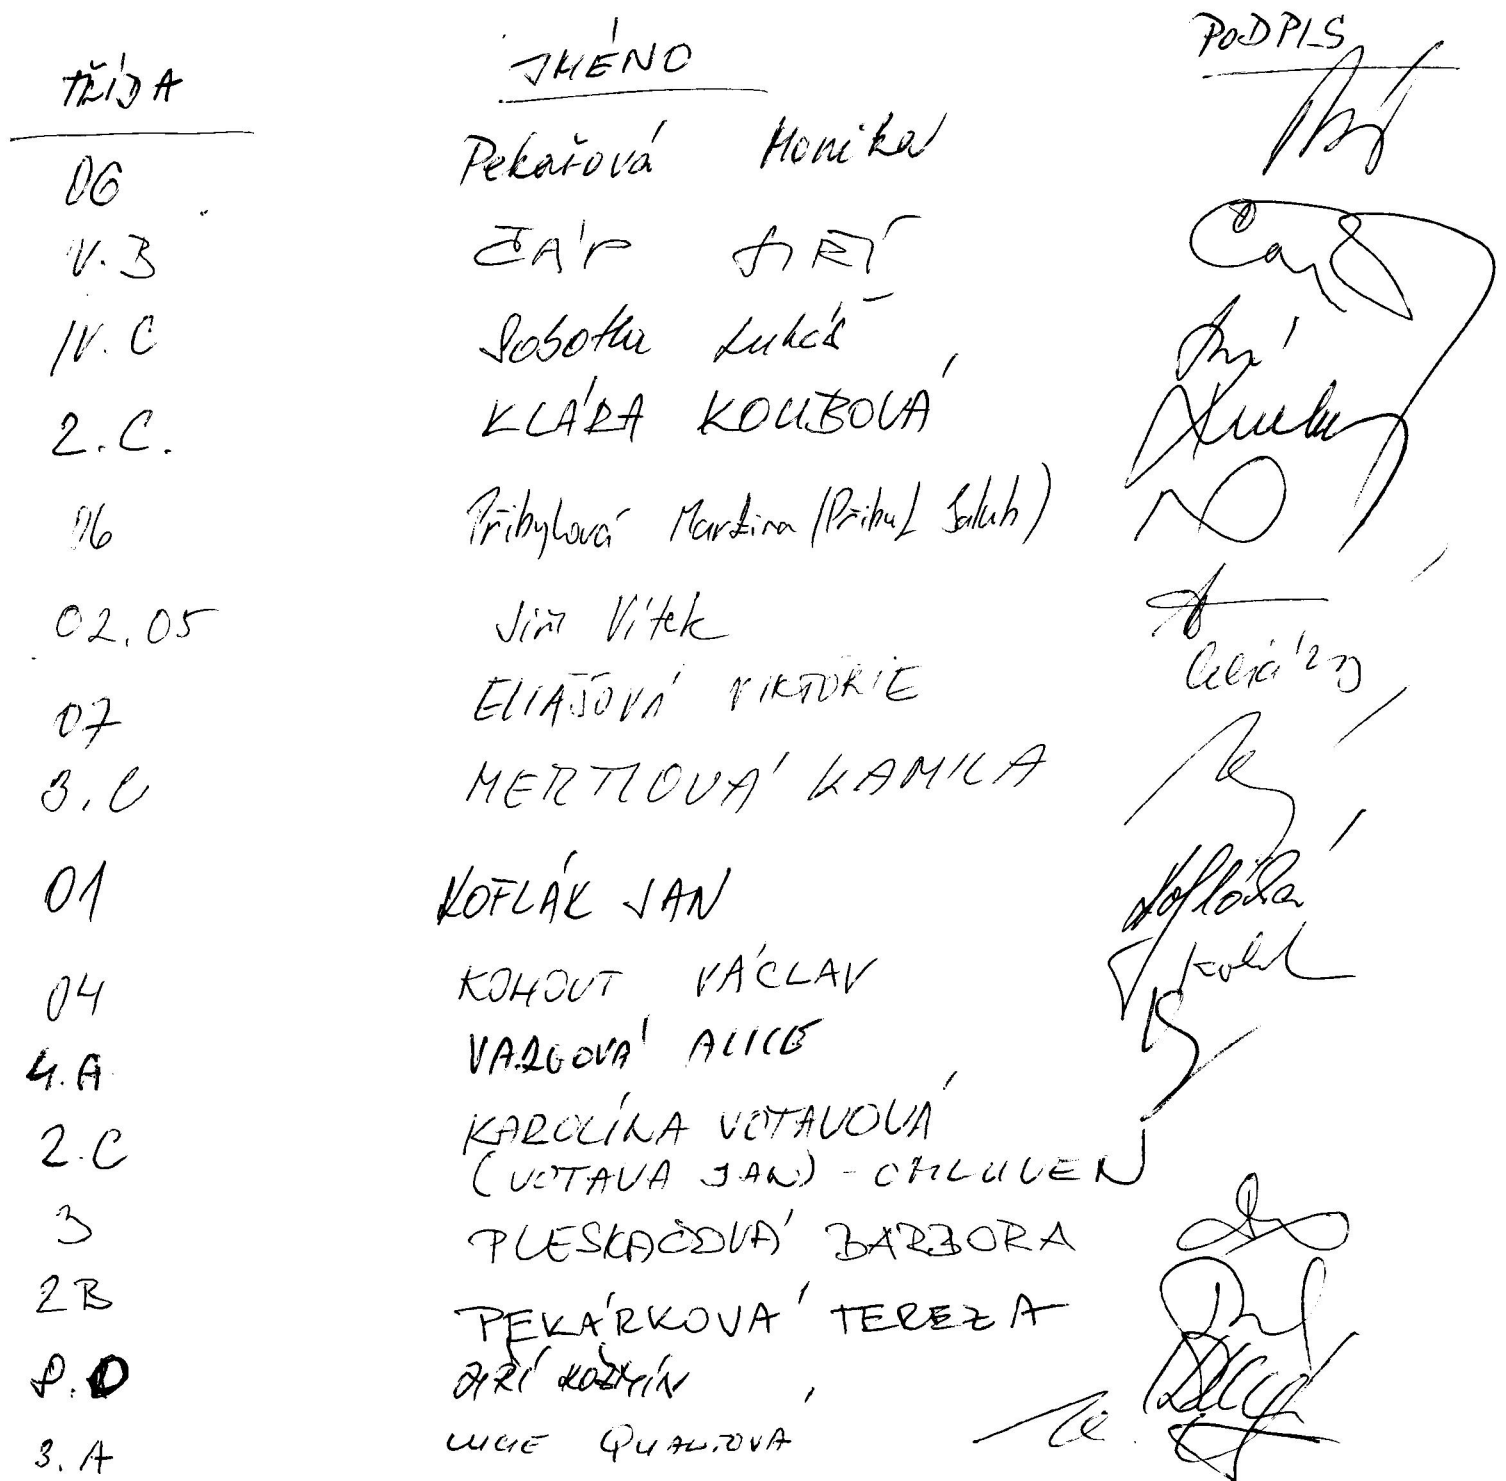 TŘÍDA JMÉNO PODPIS
06 Pekařová Monika
V.B ČÁP JIŘÍ
IV.C Sobotka Lukáš
2.C. KLÁRA KOUBOVÁ
06 Přibylová Martina (Přibyl Jakub)
02.05 Jiří Vítek
07 ELIAŠOVÁ VIKTORIE
3.C MERTLOVÁ KAMILA
01 KOFLÁK JAN
04 KOHOUT VÁCLAV
4.A VARGOVÁ ALICE
2.C KAROLÍNA VOTAVOVÁ
(VOTAVA JAN) - OMLUVEN
3 PLESKAČOVÁ BARBORA
2B PEKÁRKOVÁ TEREZA
P.D JIŘÍ
3.A LUCIE